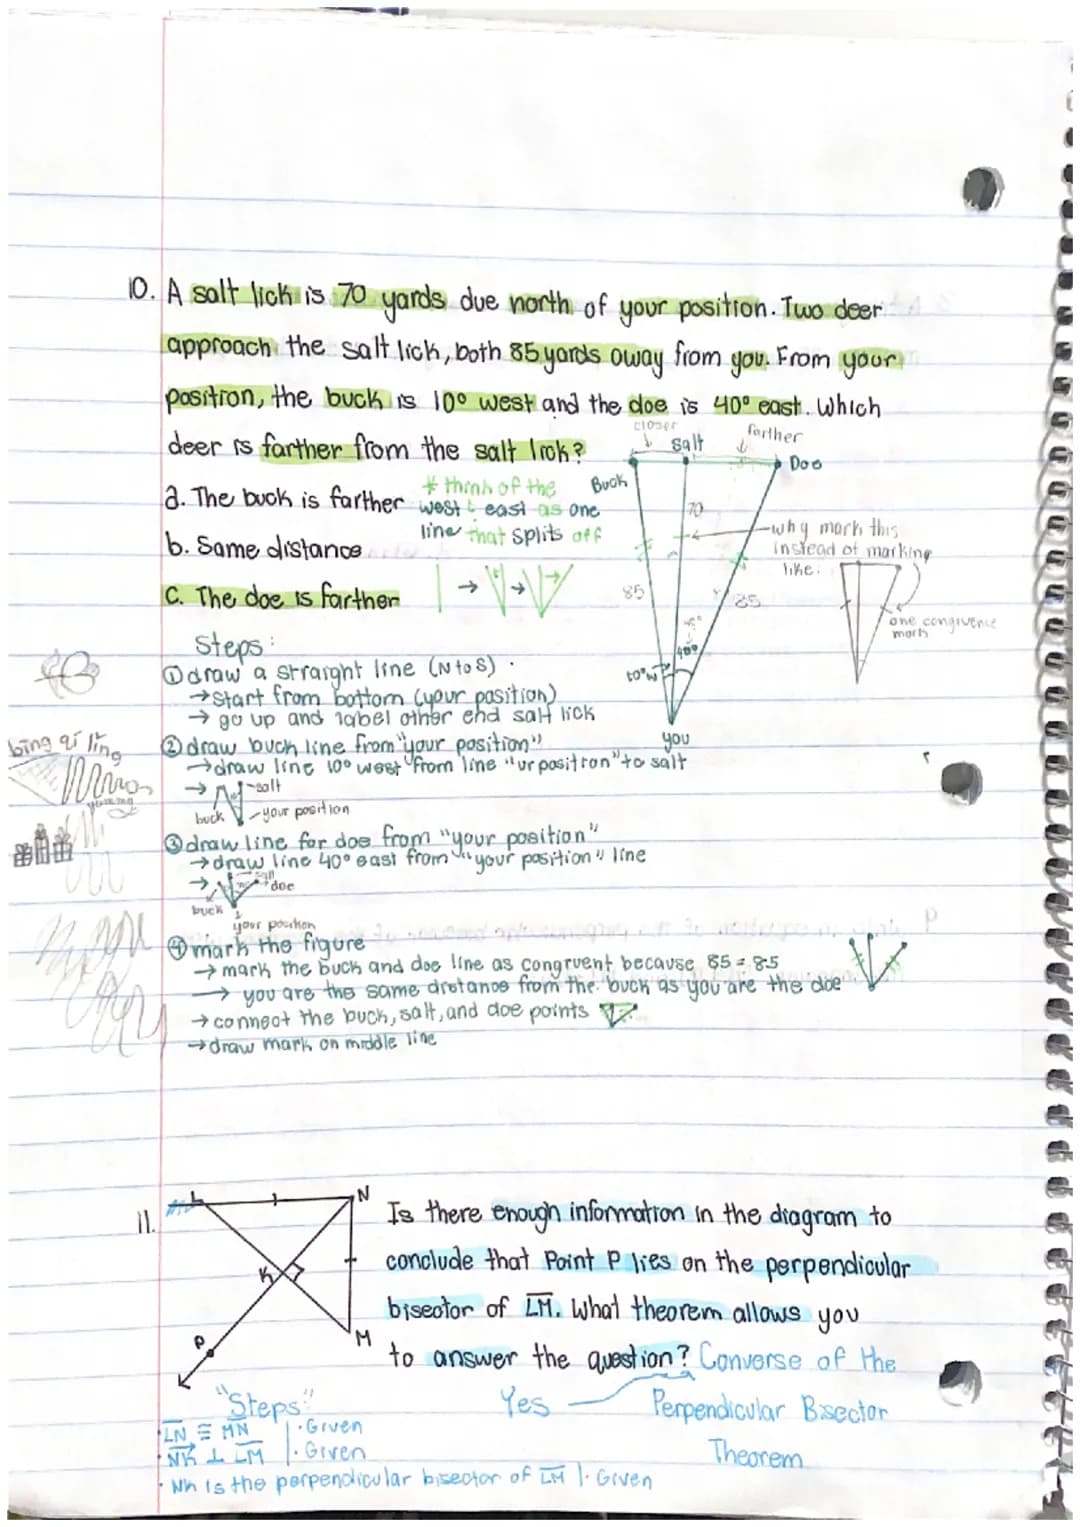 10. A salt lick is 70 yards due north of your position. Two deer
approach the salt lick, both 85 yards away from you. From your
position, the buck is 10° west and the doe is 40° east. Which
deer is farther from the salt lick?
closer
farther
salt
Doe
Buck
a. The buck is farther
* think of the
west & east as one
line that splits off
70
why mark this
instead of marking
like.
b. Same distance
85
85
one congruence
mark
C. The doe is farther
40°
10°W
you
Steps:
① draw a straight line (N to S)
→ start from bottom (your position)
→ go up and label other end salt lick
bīng qí líng
② draw buck line from "your position"
→ draw line 10° west from line "ur position" to salt
→
salt
buck
your position
③ draw line for doe from "your position"
→ draw line 40° east from "your position" line
→
salt
doe
buck
your position
④ mark the figure
→ mark the buck and doe line as congruent because 85 = 85
→ you are the same distance from the buck as you are the doe
→ connect the buck, salt, and doe points
→ draw mark on middle line
11.
L
N
K
P
M
Is there enough information in the diagram to
conclude that Point P lies on the perpendicular
bisector of LM. What theorem allows you
to answer the question? Converse of the
Yes
Perpendicular Bisector
Theorem
"Steps"
· LN ≅ MN | · Given
· NK ⊥ LM | · Given
· NK is the perpendicular bisector of LM | · Given